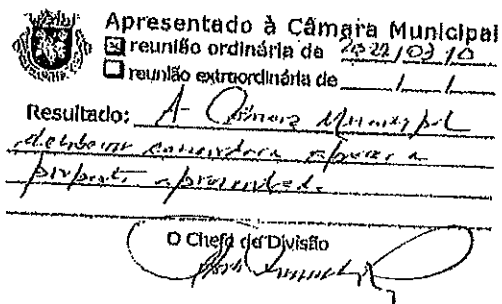 Apresentado à Câmara Municipal
☒ reunião ordinária de 2022/03/10
☐ reunião extraordinária de ___/___/___
Resultado: A Câmara Municipal
deliberou aprovar a
proposta apresentada.
O Chefe da Divisão